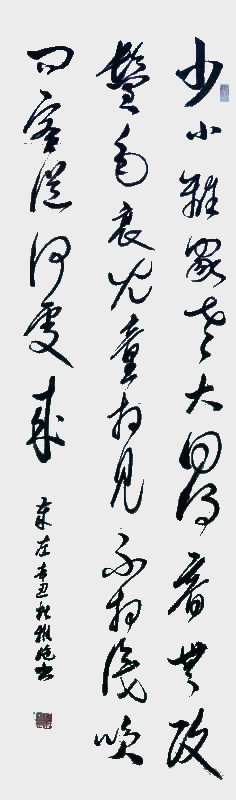 少小離家老大回鄉音無改
鬢毛衰兒童相見不相識笑
问客從何處來
歲在辛丑秋